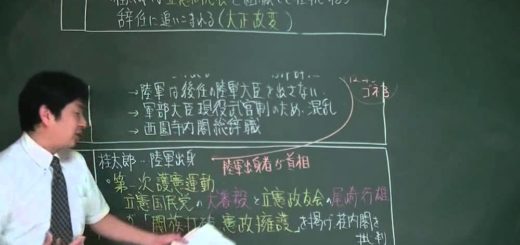 辞任に追いこまれる(大正政変)
→陸軍は後任の陸軍大臣を出さない
→軍部大臣現役武官制のため、混乱
→西園寺内閣総辞職
桂太郎‥陸軍出身
陸軍出身者が首相
第一次護憲運動
立憲国民党の犬養毅と立憲政友会の尾崎行雄
が「閥族打破 憲政擁護」を掲げ、桂内閣を
批判